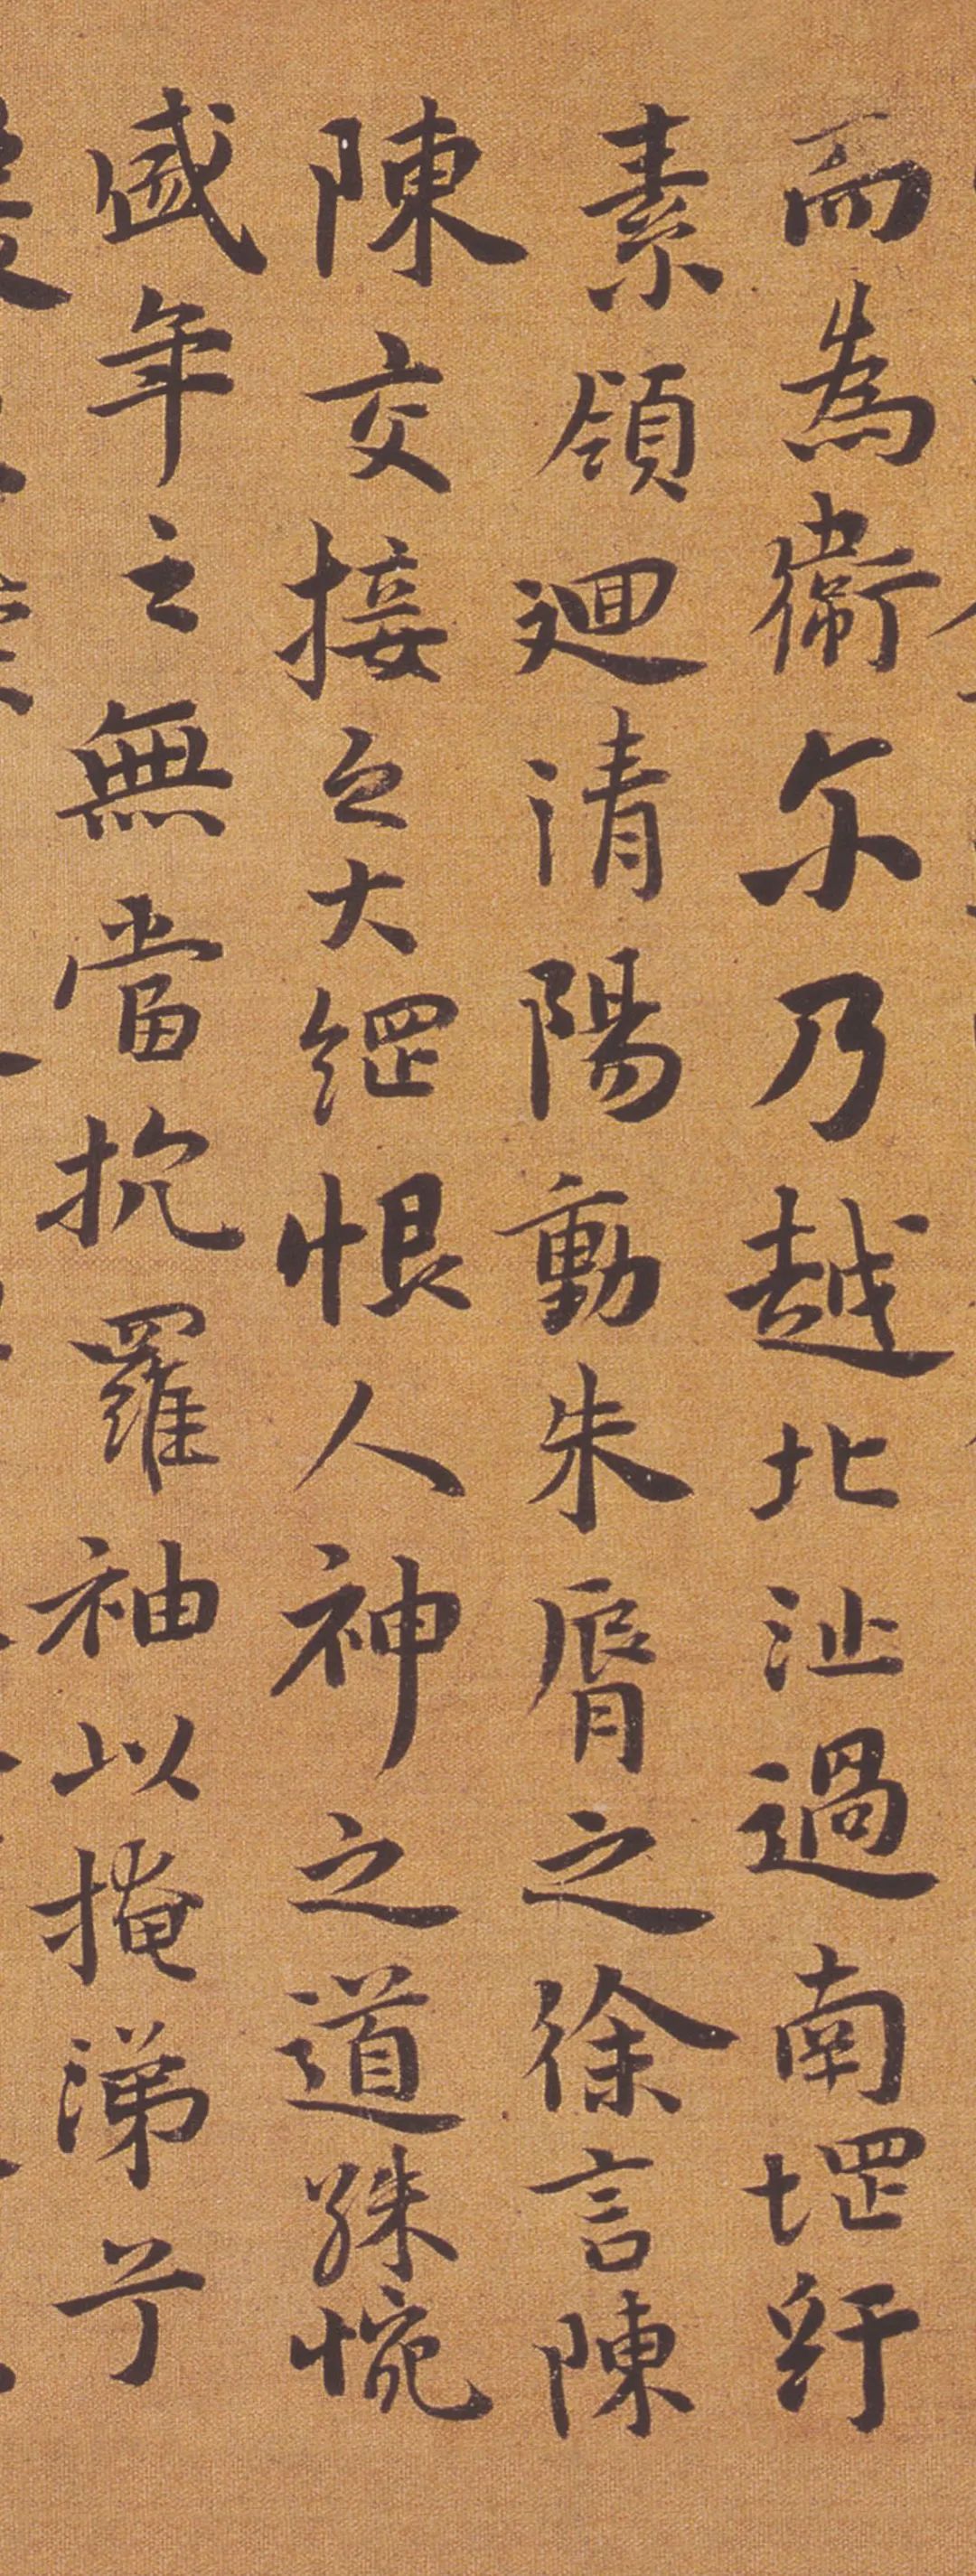 而為衞尓乃越北沚過南堽紆
素領廻清陽動朱脣之徐言陳
陳交接之大綱恨人神之道殊惋
盛年之無當抗羅袖以掩涕兮